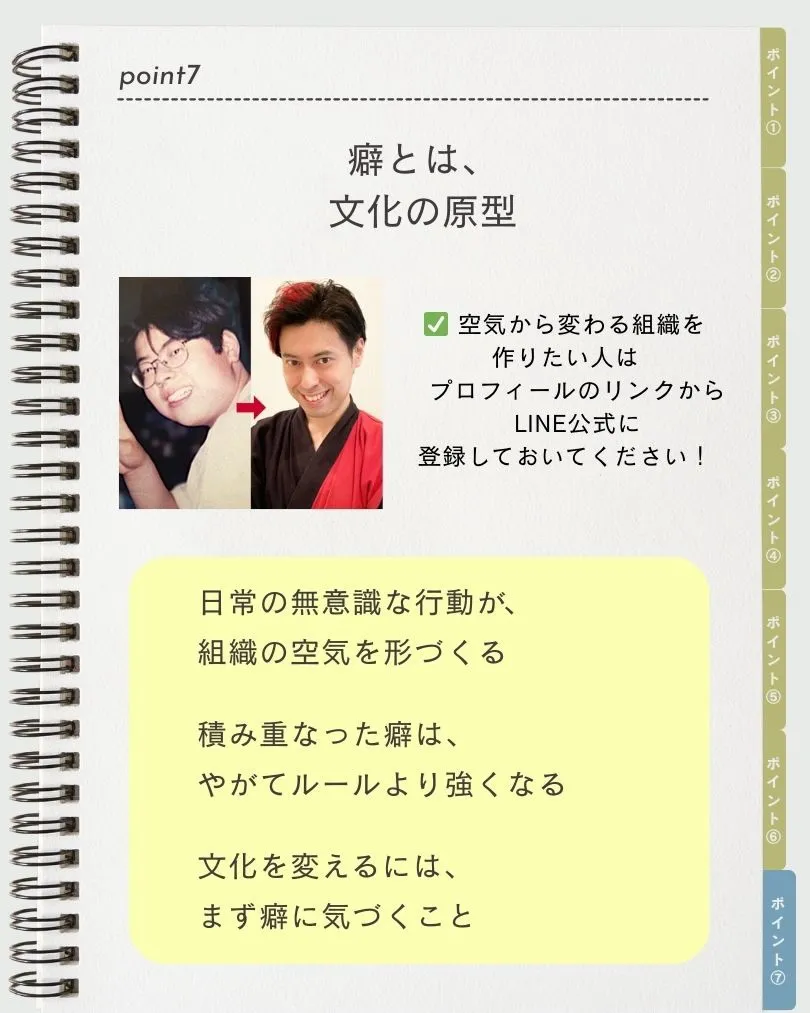 point7
癖とは、
文化の原型
✅ 空気から変わる組織を
作りたい人は
プロフィールのリンクから
LINE公式に
登録しておいてください！
日常の無意識な行動が、
組織の空気を形づくる
積み重なった癖は、
やがてルールより強くなる
文化を変えるには、
まず癖に気づくこと
ポイント①
ポイント②
ポイント③
ポイント④
ポイント⑤
ポイント⑥
ポイント⑦